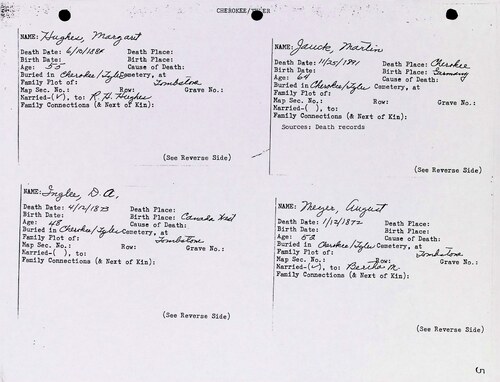 CHEROKEE/TYLER
NAME: Hughes, Margaret
Death Date: 6/10/1884 Death Place:
Birth Date: Birth Place:
Age: 55 Cause of Death:
Buried in Cherokee/Tyler Cemetery, at
Family Plot of: Tombstone
Map Sec. No.: Row: Grave No.:
Married-(✓), to: R. H. Hughes
Family Connections (& Next of Kin):
(See Reverse Side)
NAME: Jauck, Martin
Death Date: 11/25/1891 Death Place: Cherokee
Birth Date: Birth Place: Germany
Age: 64 Cause of Death:
Buried in Cherokee/Tyler Cemetery, at
Family Plot of:
Map Sec. No.: Row: Grave No.:
Married-( ), to:
Family Connections (& Next of Kin):
Sources: Death records
(See Reverse Side)
NAME: Inglee, D. A.
Death Date: 4/12/1873 Death Place:
Birth Date: Birth Place: Canada West
Age: 48 Cause of Death:
Buried in Cherokee/Tyler Cemetery, at
Family Plot of: Tombstone
Map Sec. No.: Row: Grave No.:
Married-( ), to:
Family Connections (& Next of Kin):
(See Reverse Side)
NAME: Meyer, August
Death Date: 1/12/1872 Death Place:
Birth Date: Birth Place:
Age: 52 Cause of Death:
Buried in Cherokee/Tyler Cemetery, at
Family Plot of: Tombstone
Map Sec. No.: Row: Grave No.:
Married-(✓), to: Bertha M.
Family Connections (& Next of Kin):
(See Reverse Side)